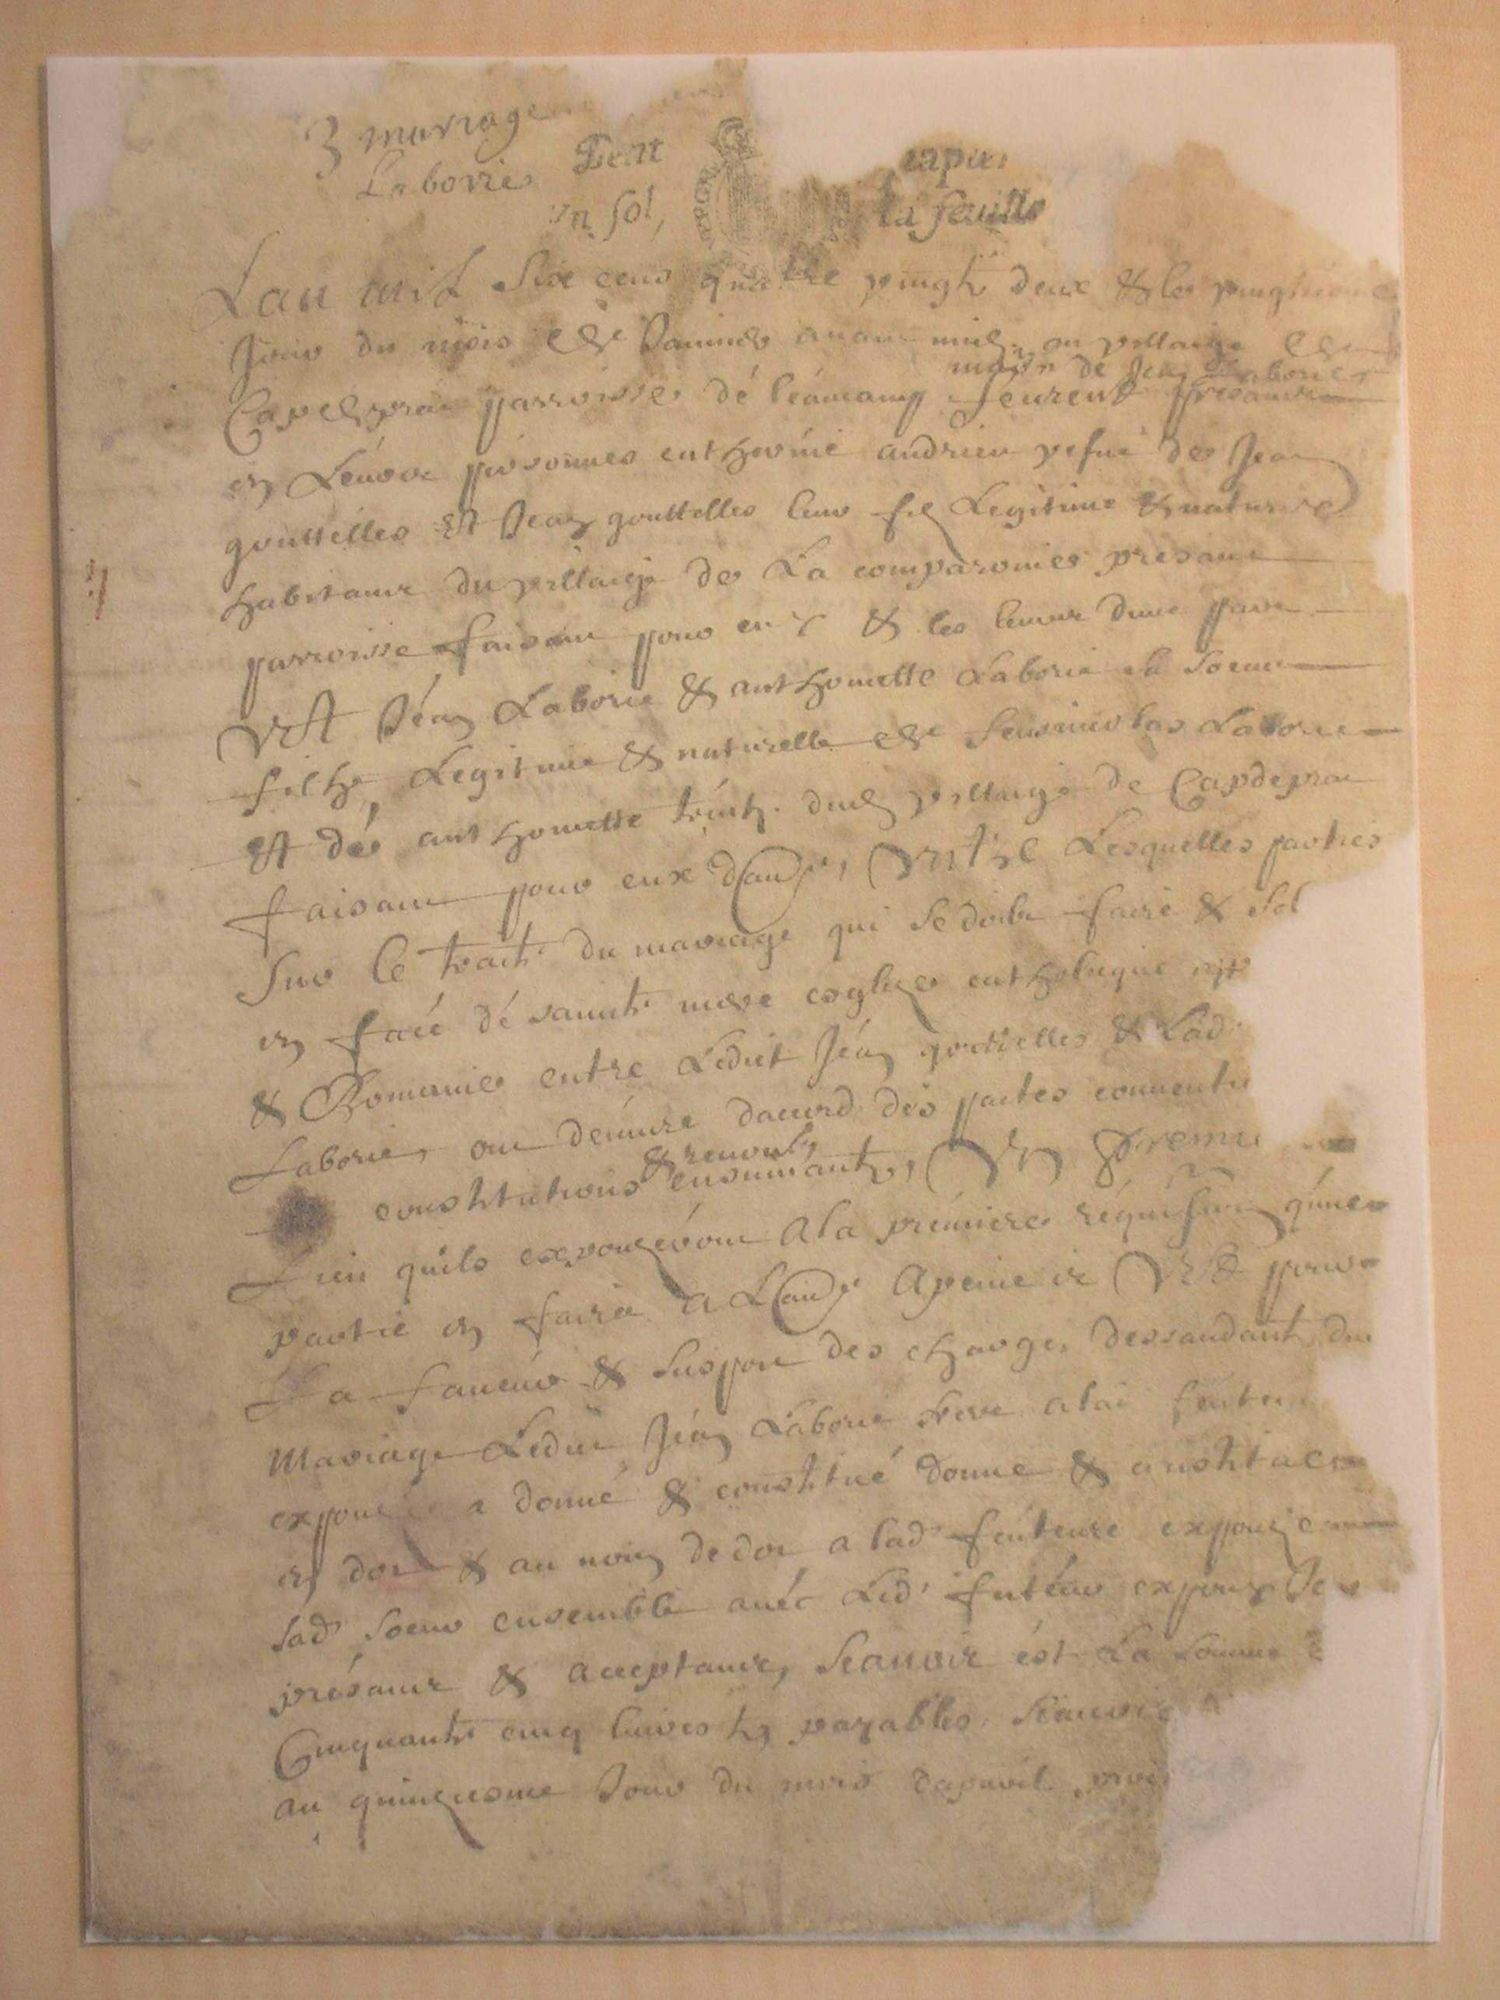 3 mariage
Laborie Petit papier
un sol, la feuille
Lan mil six cens quattre vingtz deux & le vingtiesme
Jour du mois de Janvier avant midy au villaige de
maison de Jean Laborie
Capdeprat parroisse de leucamp feurent presans
en Leurs personnes catherine andrieu vefue de Jean
gouttelles Et Jean gouttelles leur filz Legitime & naturel
habitans du villaige de La comparonie presant
parroisse faisant pour eux & les leurs dune part
Et Jean Laborie & anthonette Laborie sa soeur
filhe Legitime & naturelle de feu Laborie
Et de anthonette dud villaige de Capdeprat
faisant pour eux dautre, Entre Lesquelles parties
Sur le traité du mariage qui se doibt faire & sol
en face de saincte mere esglize catholique apo
& Romaine entre Ledict Jean gouttelles & Lad
Laborie, ont demeuré dacord des pactes conventi
constitutions & renon ensuivantz, En premie
Lieu quilz expouzeront A la premiere requisition qune
partie en faira A Lautre A peine de Et pour
La faveur & suspport des charges dessandant du
Mariage Ledict Jean Laborie frere a lad feuture
expouze a donné & constitué donne & constitue
en dot & au nom de dot a lad feuteure expouze
sad soeur ensemble avec Led futeur expoux Je
présans & acceptans, Scauoir est La somme
Cinquante cinq livres tz payables, Scauoir
au quinziesme Jour du mois dapuril